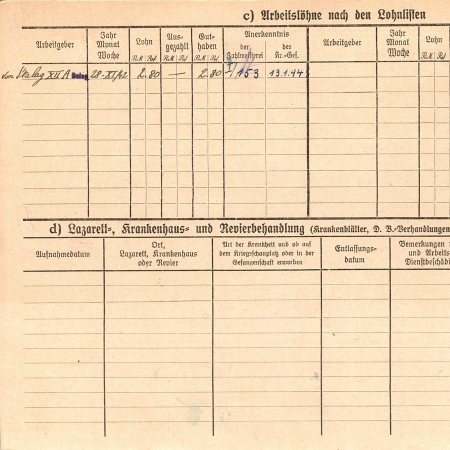 c) Arbeitslöhne nach den Lohnlisten
Arbeitgeber
Jahr Monat Woche
Lohn
RM Rpf
Ausgezahlt
RM Rpf
Guthaben
RM Rpf
Anerkenntnis
der Zahlmeisterei
des Kr.-Gef.
Arbeitgeber
Jahr Monat Woche
Lohn
RM Rpf
von Stalag XII A 28-XI/42 2.80 — 2.80 153 13.1.44
d) Lazarett-, Krankenhaus- und Revierbehandlung (Krankenblätter, D. B.-Verhandlungen
Aufnahmedatum
Ort,
Lazarett, Krankenhaus
oder Revier
Art der Krankheit und ob auf
dem Kriegsschauplatz oder in der
Gefangenschaft erworben
Entlassungs-
datum
Bemerkungen
und Arbeits
Dienstbeschädi